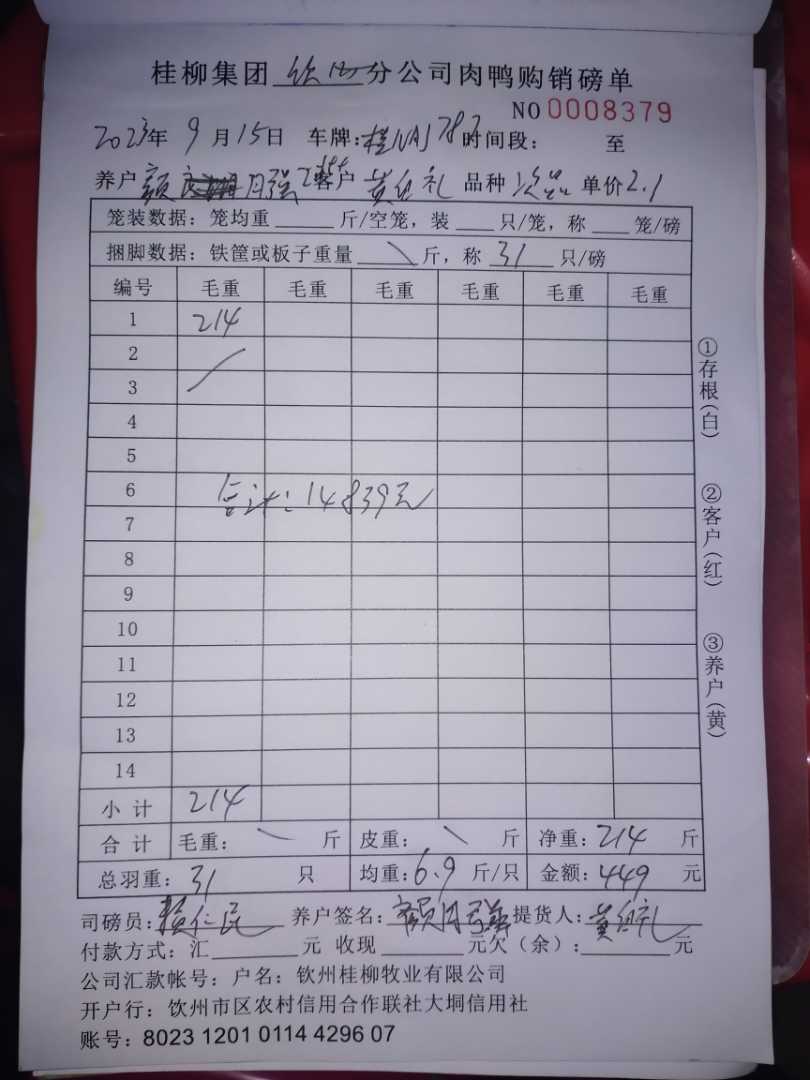 桂柳集团 钦州 分公司肉鸭购销磅单
NO 0008379
2023年 9 月 15日 车牌:桂NAJ787 时间段: 至
养户 颜 月强 客户 黄 礼 品种 次品 单价2.1
笼装数据: 笼均重 斤/空笼, 装 只/笼, 称 笼/磅
捆脚数据: 铁筐或板子重量 \ 斤, 称 31 只/磅
编号 毛重 毛重 毛重 毛重 毛重 毛重
1 214
2
3
4
5
6 合计: 14839元
7
8
9
10
11
12
13
14
小计 214
合计 毛重: \ 斤 皮重: \ 斤 净重: 214 斤
总羽重: 31 只 均重: 6.9 斤/只 金额: 449 元
司磅员: 赖仁民 养户签名: 颜月强 提货人: 黄 礼
付款方式: 汇 元 收现 元欠(余): 元
公司汇款帐号: 户名: 钦州桂柳牧业有限公司
开户行: 饮州市区农村信用合作联社大垌信用社
账号: 8023 1201 0114 4296 07
①存根(白)
②客户(红)
③养户(黄)